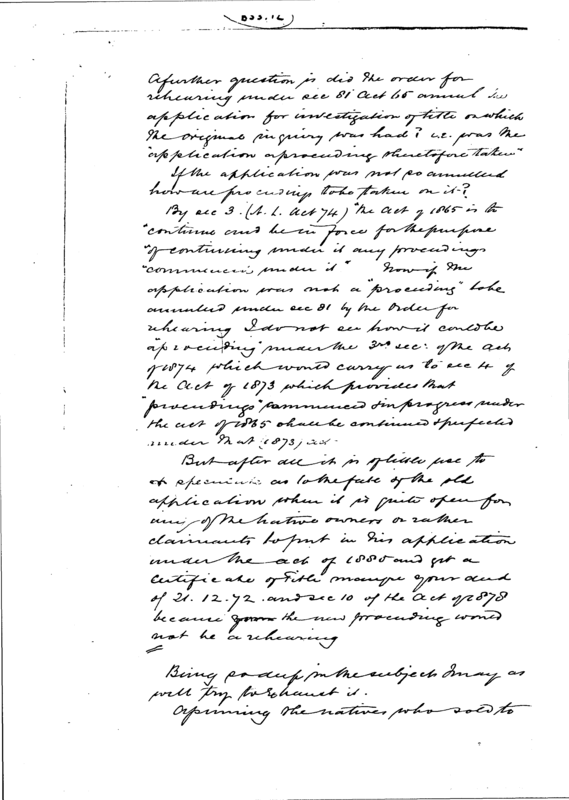 D33.12
A further question is did the order for
rehearing under sec 81 Act 65 annul the
application for investigation of title on which
the original inquiry was had? i.e. was the
"application a proceeding theretofore taken"
If the application was not so annulled
how are proceedings to be taken on it?
By sec 3. (N. L. Act 74) "the Act of 1865 is to
"continue and be in force for the purpose
"of continuing under it any proceedings
"commenced under it" Now if the
application was not a "proceeding" to be
annulled under sec 81 by the Order for
rehearing I do not see how it could be
"a proceeding" under the 3rd sec: of the Act
of 1874 which would carry us to sec 4 of
the Act of 1873 which provides that
"proceedings" commenced & in progress under
the act of 1865 shall be continued & perfected
under that (1873) act.
But after all it is of little use to
as to the fate of the old
application when it is quite open for
any of the Native owners or rather
claimants to put in his application
under the act of 1880 and get a
Certificate of Title your deed
of 21. 12. 72. and sec 10 of the Act of 1878
because the new proceeding would
not be a rehearing
Being so deep in the subject I may as
well try to exhaust it.
Assuming the natives who sold to